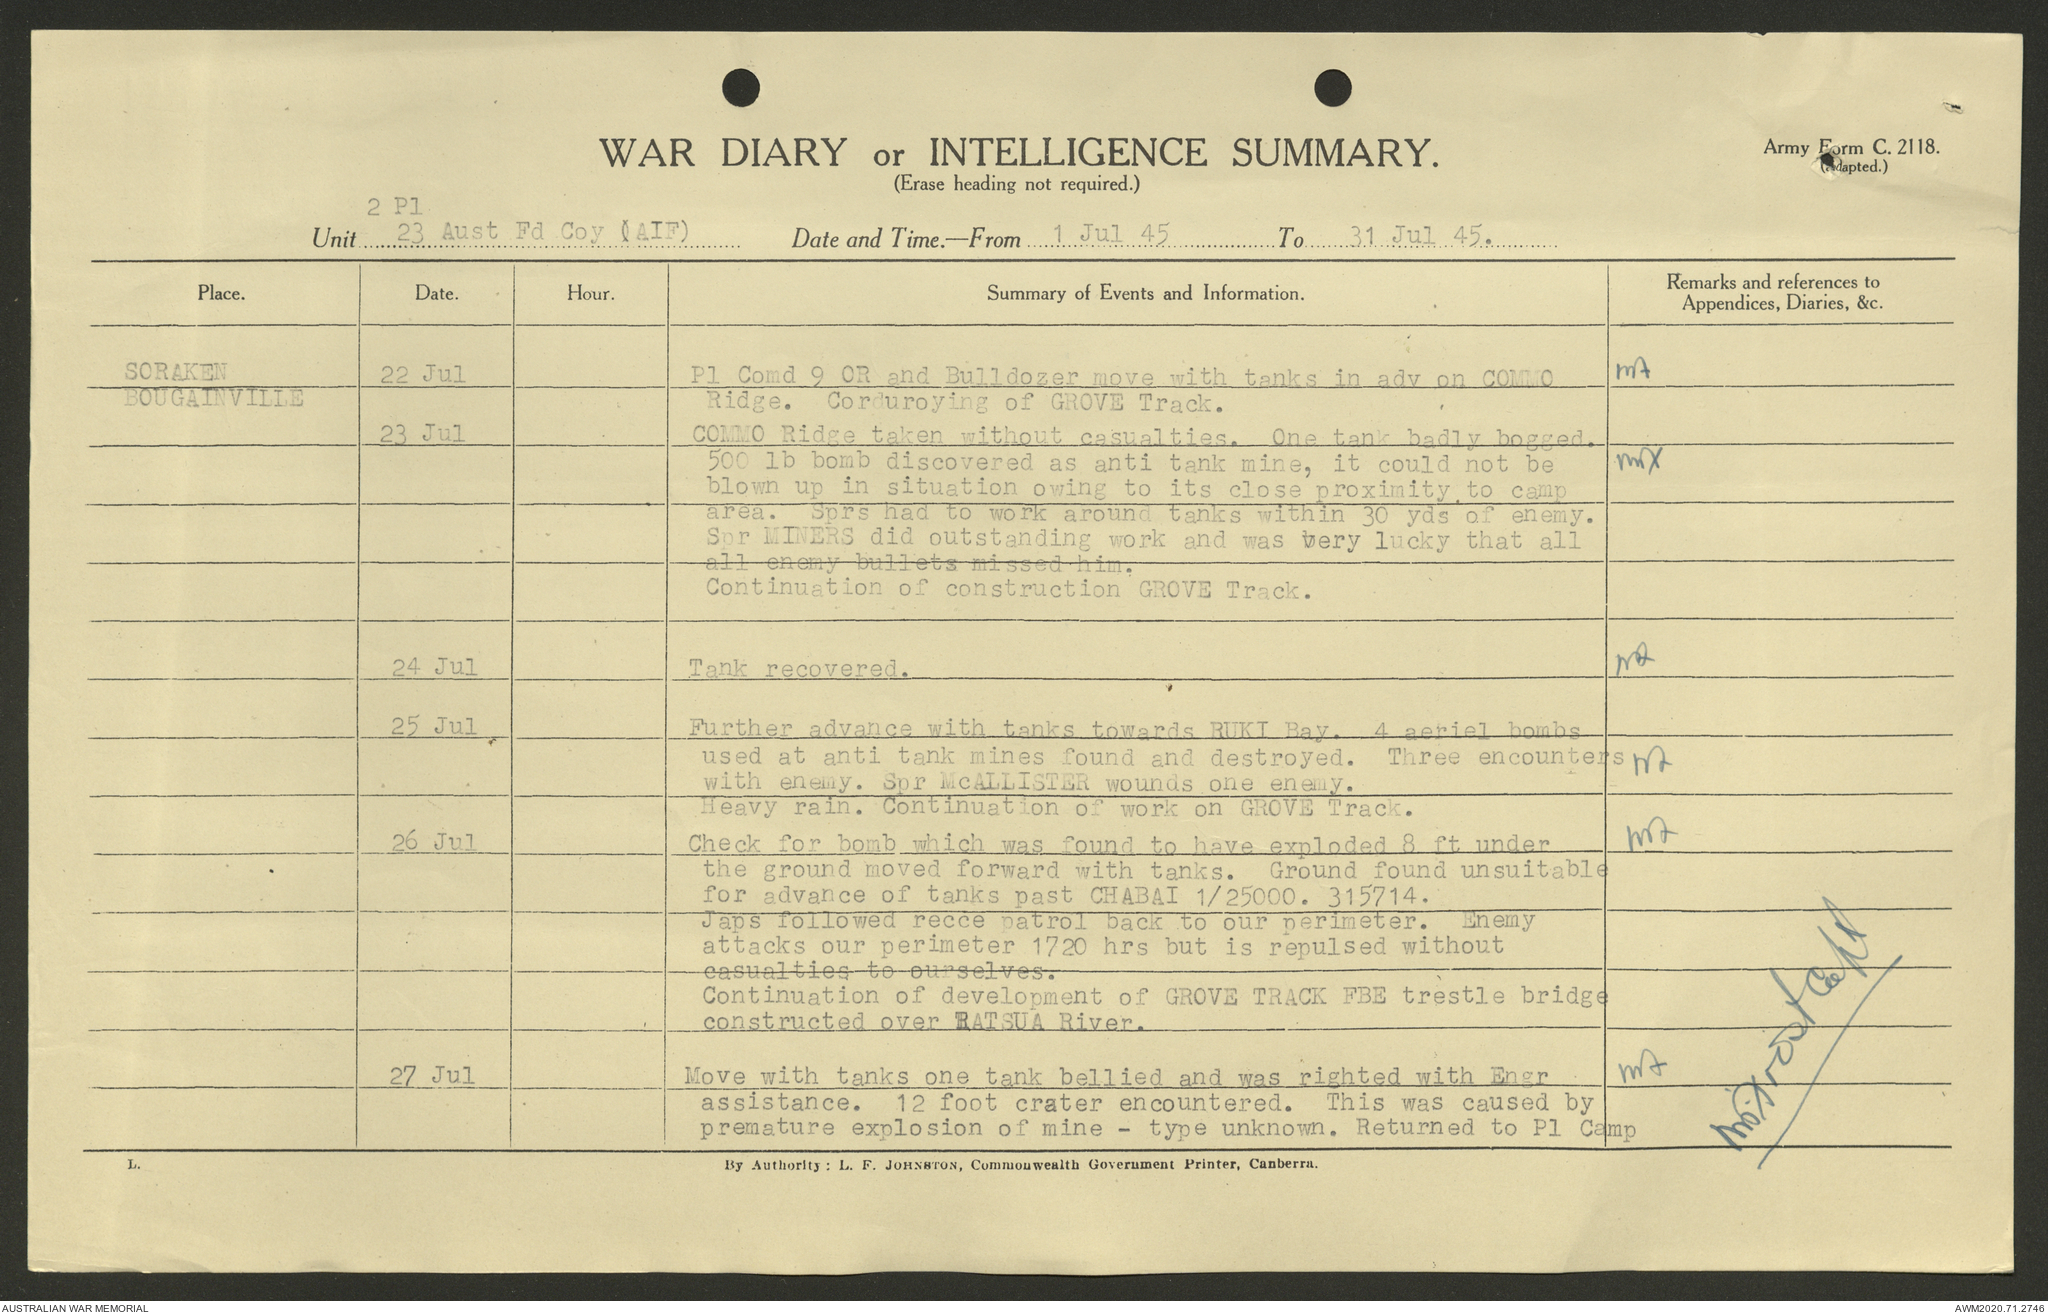 WAR DIARY or INTELLIGENCE SUMMARY.
(Erase heading not required.)
Army Form C. 2118.
(Adapted.)
2 Pl
Unit 23 Aust Fd Coy (AIF) Date and Time.—From 1 Jul 45 To 31 Jul 45.
Place. Date. Hour. Summary of Events and Information. Remarks and references to
Appendices, Diaries, &c.
SORAKEN 22 Jul Pl Comd 9 OR and Bulldozer move with tanks in adv on COMMO
BOUGAINVILLE Ridge. Corduroying of GROVE Track.
23 Jul COMMO Ridge taken without casualties. One tank badly bogged.
500 lb bomb discovered as anti tank mine, it could not be
blown up in situation owing to its close proximity to camp
area. Sprs had to work around tanks within 30 yds of enemy.
Spr MINERS did outstanding work and was very lucky that all
all enemy bullets missed him.
Continuation of construction GROVE Track.
24 Jul Tank recovered.
25 Jul Further advance with tanks towards RUKI Bay. 4 aeriel bombs
used at anti tank mines found and destroyed. Three encounters
with enemy. Spr McALLISTER wounds one enemy.
Heavy rain. Continuation of work on GROVE Track.
26 Jul Check for bomb which was found to have exploded 8 ft under
the ground moved forward with tanks. Ground found unsuitable
for advance of tanks past CHABAI 1/25000. 315714.
Japs followed recce patrol back to our perimeter. Enemy
attacks our perimeter 1720 hrs but is repulsed without
casualties to ourselves.
Continuation of development of GROVE TRACK FBE trestle bridge
constructed over RATSUA River.
27 Jul Move with tanks one tank bellied and was righted with Engr
assistance. 12 foot crater encountered. This was caused by
premature explosion of mine - type unknown. Returned to Pl Camp
L. By Authority: L. F. JOHNSTON, Commonwealth Government Printer, Canberra.
AUSTRALIAN WAR MEMORIAL AWM2020.71.2746